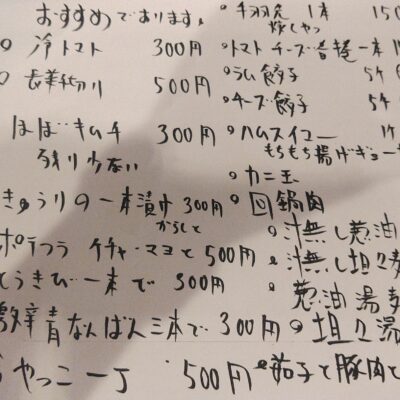 おすすめであります。
冷トマト 300円
500円
ほぼキムチ 300円
残り少ない
きゅうりの一本漬け 300円
からしと
ポテフラ イチャ・マヨと 500円
とうきび一本で 300円
激辛青なんばん三本で 300円
やっこ一丁 500円
手羽先 1本 150
トマトチーズ春捲一本
ラム餃子 5ヶ
チーズ餃子 5ヶ
ハムスイコー
もちもち揚げギョー
カニ玉
回鍋肉
汁無し葱油
汁無し坦々麦
葱油湯麦
坦々湯
茄子と豚肉と